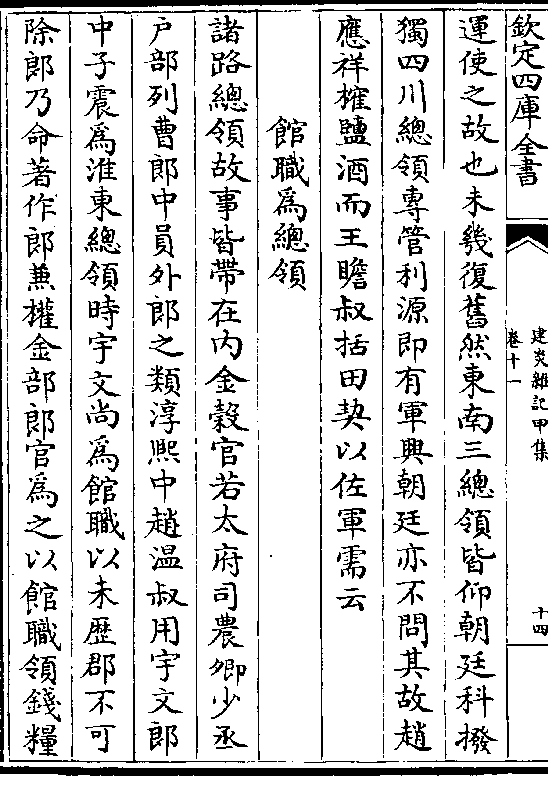 欽定四庫全書
建炎雜記甲集
卷十一
十四
運使之故也未幾復舊然東南三總領皆仰朝廷科撥
獨四川總領專管利源即有軍興朝廷亦不問其故趙
應祥榷鹽酒而王瞻叔括田契以佐軍需云
館職爲總領
諸路總領故事皆帶在内金榖官若太府司農卿少丞
户部列曹郎中員外郎之類淳熙中趙温叔用宇文郎
中子震爲淮東總領時宇文尚爲館職以未歴郡不可
除郎乃命著作郎兼權金部郎官爲之以館職領錢糧